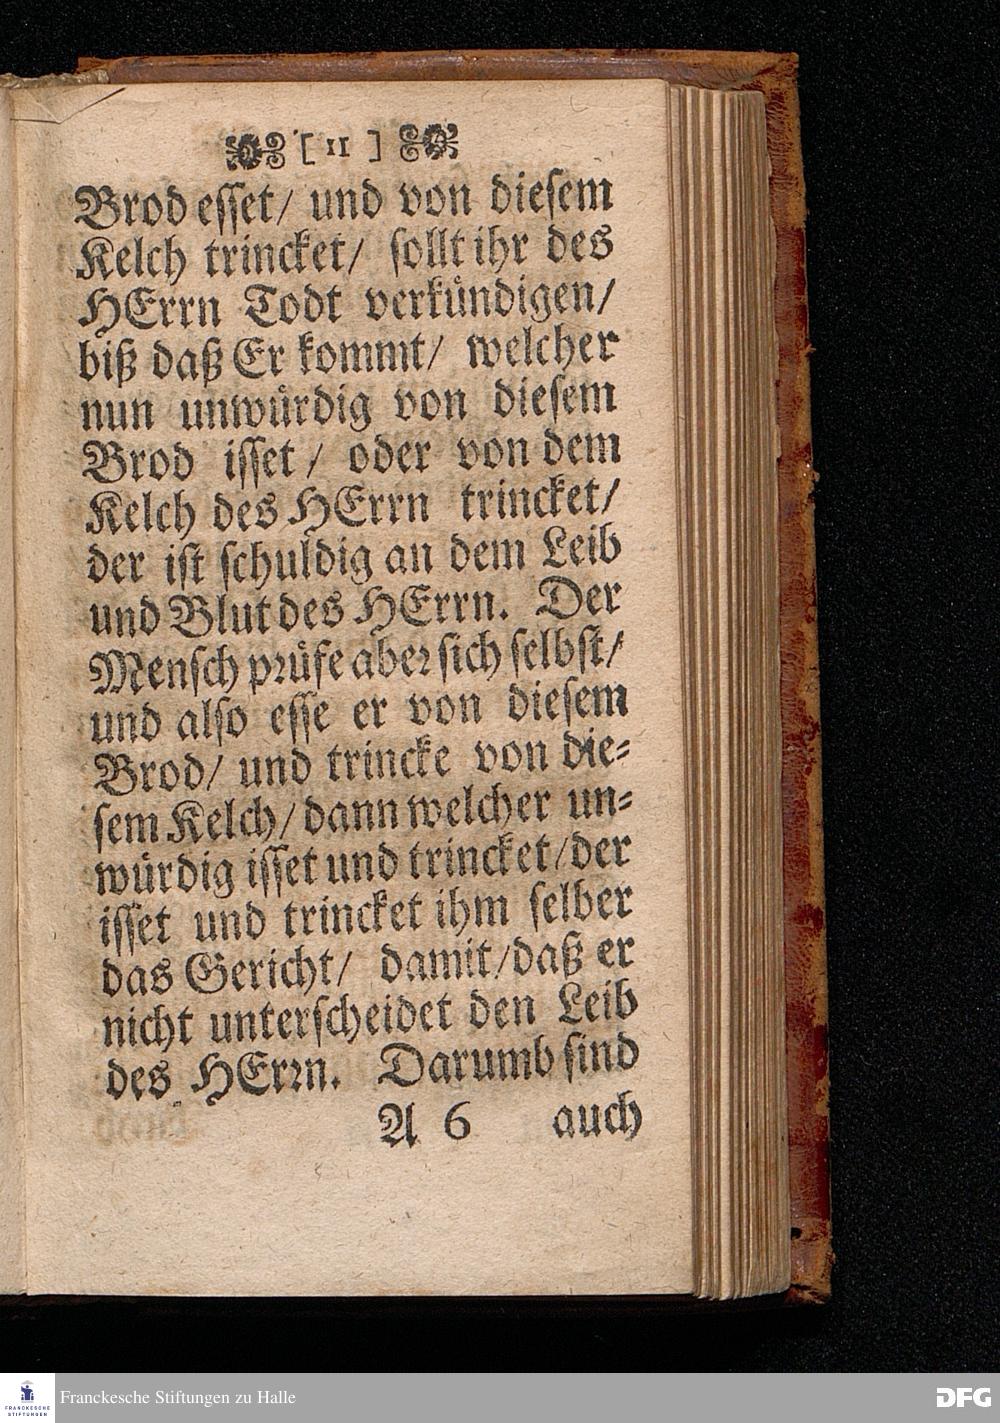 [ 11 ]
Brod esset/ und von diesem
Kelch trincket/ sollt ihr des
HErrn Todt verkündigen/
biß daß Er kommt/ welcher
nun unwürdig von diesem
Brod isset/ oder von dem
Kelch des HErrn trincket/
der ist schuldig an dem Leib
und Blut des HErrn. Der
Mensch prüfe aber sich selbst/
und also esse er von diesem
Brod/ und trincke von die-
sem Kelch/ dann welcher un-
würdig isset und trincket/ der
isset und trincket ihm selber
das Gericht/ damit/ daß er
nicht unterscheidet den Leib
des HErrn. Darumb sind
A 6 auch
FRANCKESCHE
STIFTUNGEN
Franckesche Stiftungen zu Halle
DFG